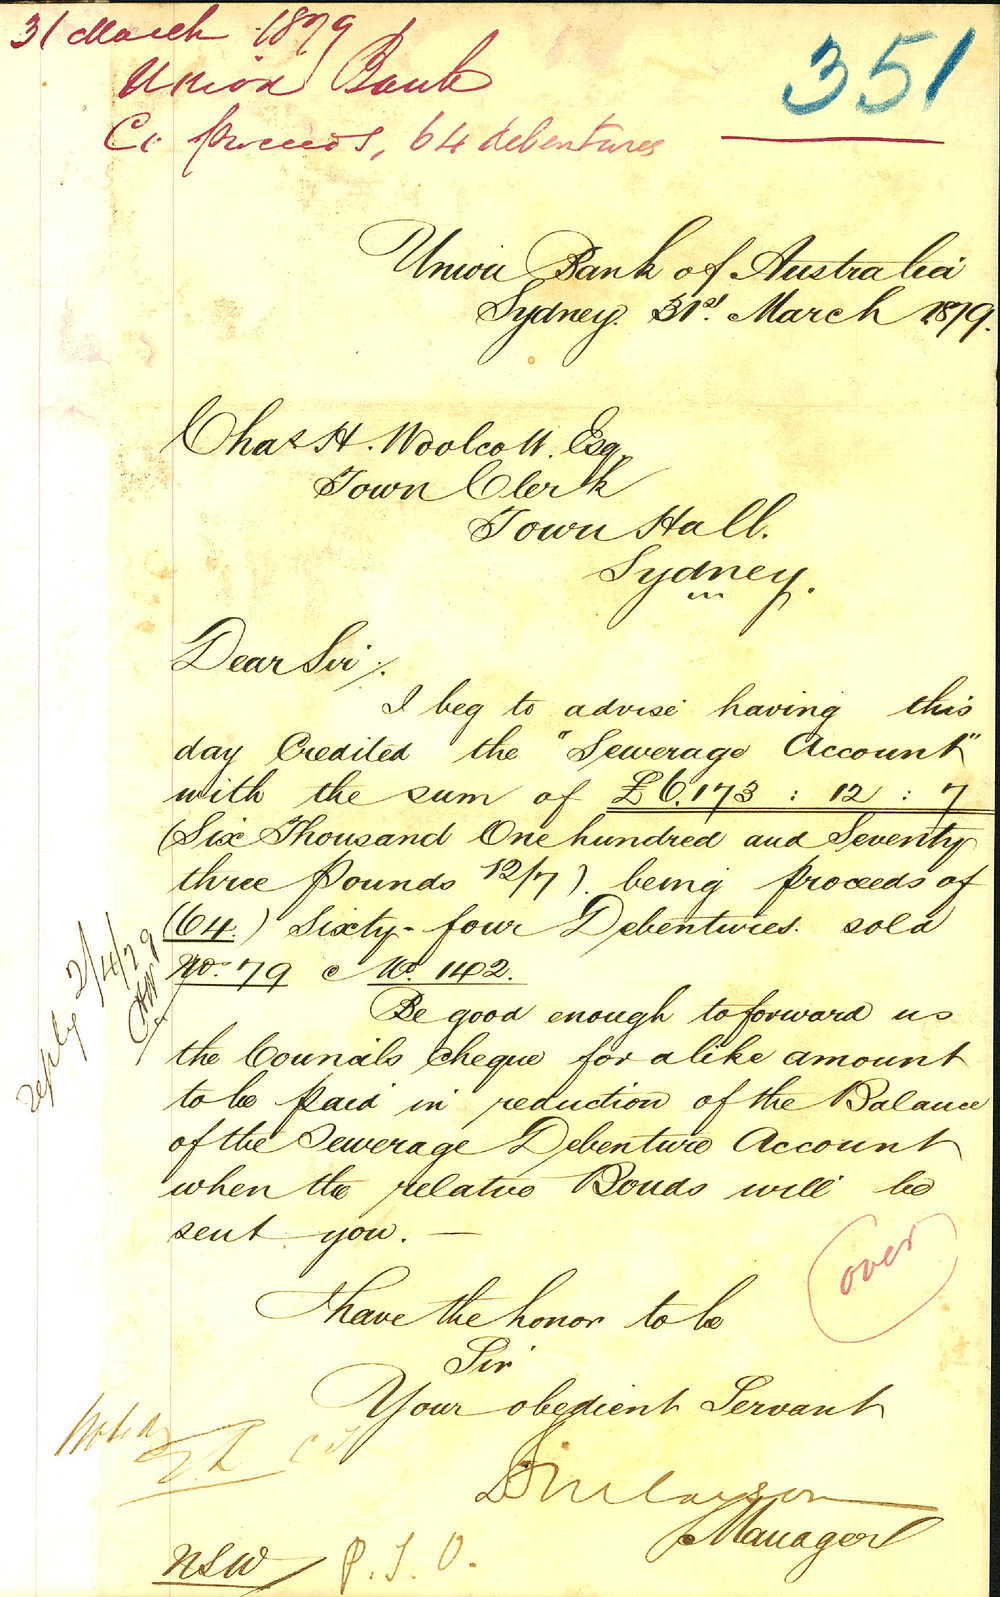 31 March 1879
Union Bank
Cr proceeds, 64 debentures
351
Union Bank of Australia
Sydney. 31st. March 1879.
Chas H. Woolcott. Esq.
Town Clerk
Town Hall.
Sydney.
Dear Sir
I beg to advise having this
day Credited the "Sewerage Account"
with the sum of £6,173 : 12 : 7
(Six Thousand One hundred and Seventy
three Pounds 12/7) being proceeds of
(64.) Sixty-four Debentures. sold
No. 79 @ No. 142.
Be good enough to forward us
the Councils Cheque for a like amount
to be paid in reduction of the Balance
of the Sewerage Debenture Account
when the relative Bonds will be
sent you. —
reply 2/4/79
over
I have the honor to be
Sir
Your obedient Servant
Manager
Noted
NSW
P.T.O.